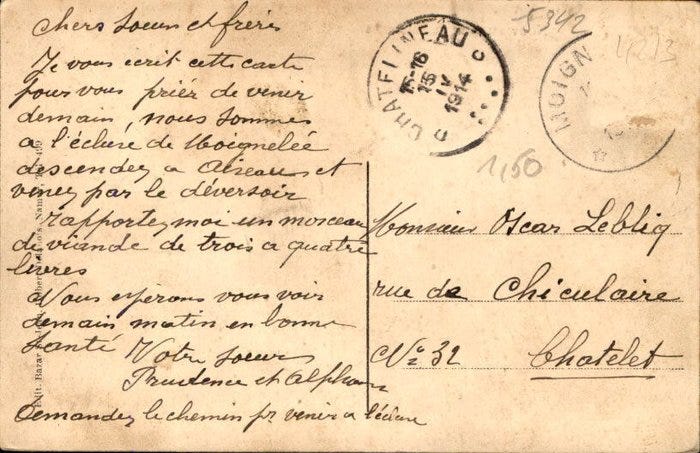 Chers soeur et frères
Je vous écrit cette carte
pour vous priér de venir
demain, nous sommes
a l'écluse de Moignelée
descendez a Aiseau et
venez par le déversoir
rapportez moi un morceau
de viande de trois a quatre
livres
Nous espérons vous voir
demain matin en bonne
santé Votre soeur
Prudence et Alphons
Demandez le chemin pr venir a l'écluse
CHATELINEAU
15-16
15
IV
1914
MOIGN
5342
4213
1,50
Monsieur Oscar Leblicq
rue de Chiculaire
No 32 Chatelet
Edit. Bazar